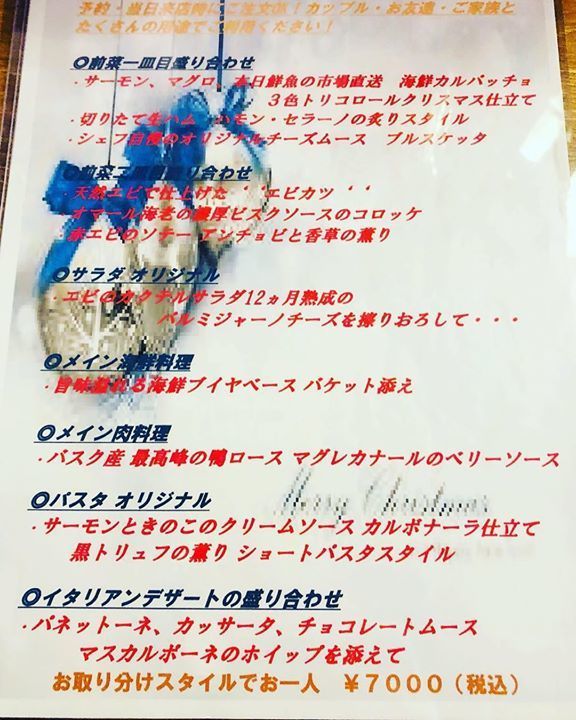 予約・当日来店時にご注文OK！カップル・お友達・ご家族と
たくさんの用途でご利用ください！
◎前菜一皿目盛り合わせ
・サーモン、マグロ、本日鮮魚の市場直送　海鮮カルパッチョ
３色トリコロールクリスマス仕立て
・切りたて生ハム　ハモン・セラーノの炙りスタイル
・シェフ自慢のオリジナルチーズムース　ブルスケッタ
◎前菜二皿目盛り合わせ
・天然エビで仕上げた‘‘エビカツ‘‘
・オマール海老の濃厚ビスクソースのコロッケ
・赤エビのソテー アンチョビと香草の薫り
◎サラダ オリジナル
・エビのカクテルサラダ12ヵ月熟成の
パルミジャーノチーズを擦りおろして・・・
◎メイン海鮮料理
・旨味溢れる海鮮ブイヤベース バケット添え
◎メイン肉料理
・バスク産 最高峰の鴨ロース マグレカナールのベリーソース
Merry Christmas
◎パスタ オリジナル
・サーモンときのこのクリームソース カルボナーラ仕立て
黒トリュフの薫り ショートパスタスタイル
◎イタリアンデザートの盛り合わせ
・パネットーネ、カッサータ、チョコレートムース
マスカルポーネのホイップを添えて
お取り分けスタイルでお一人　￥７０００（税込）